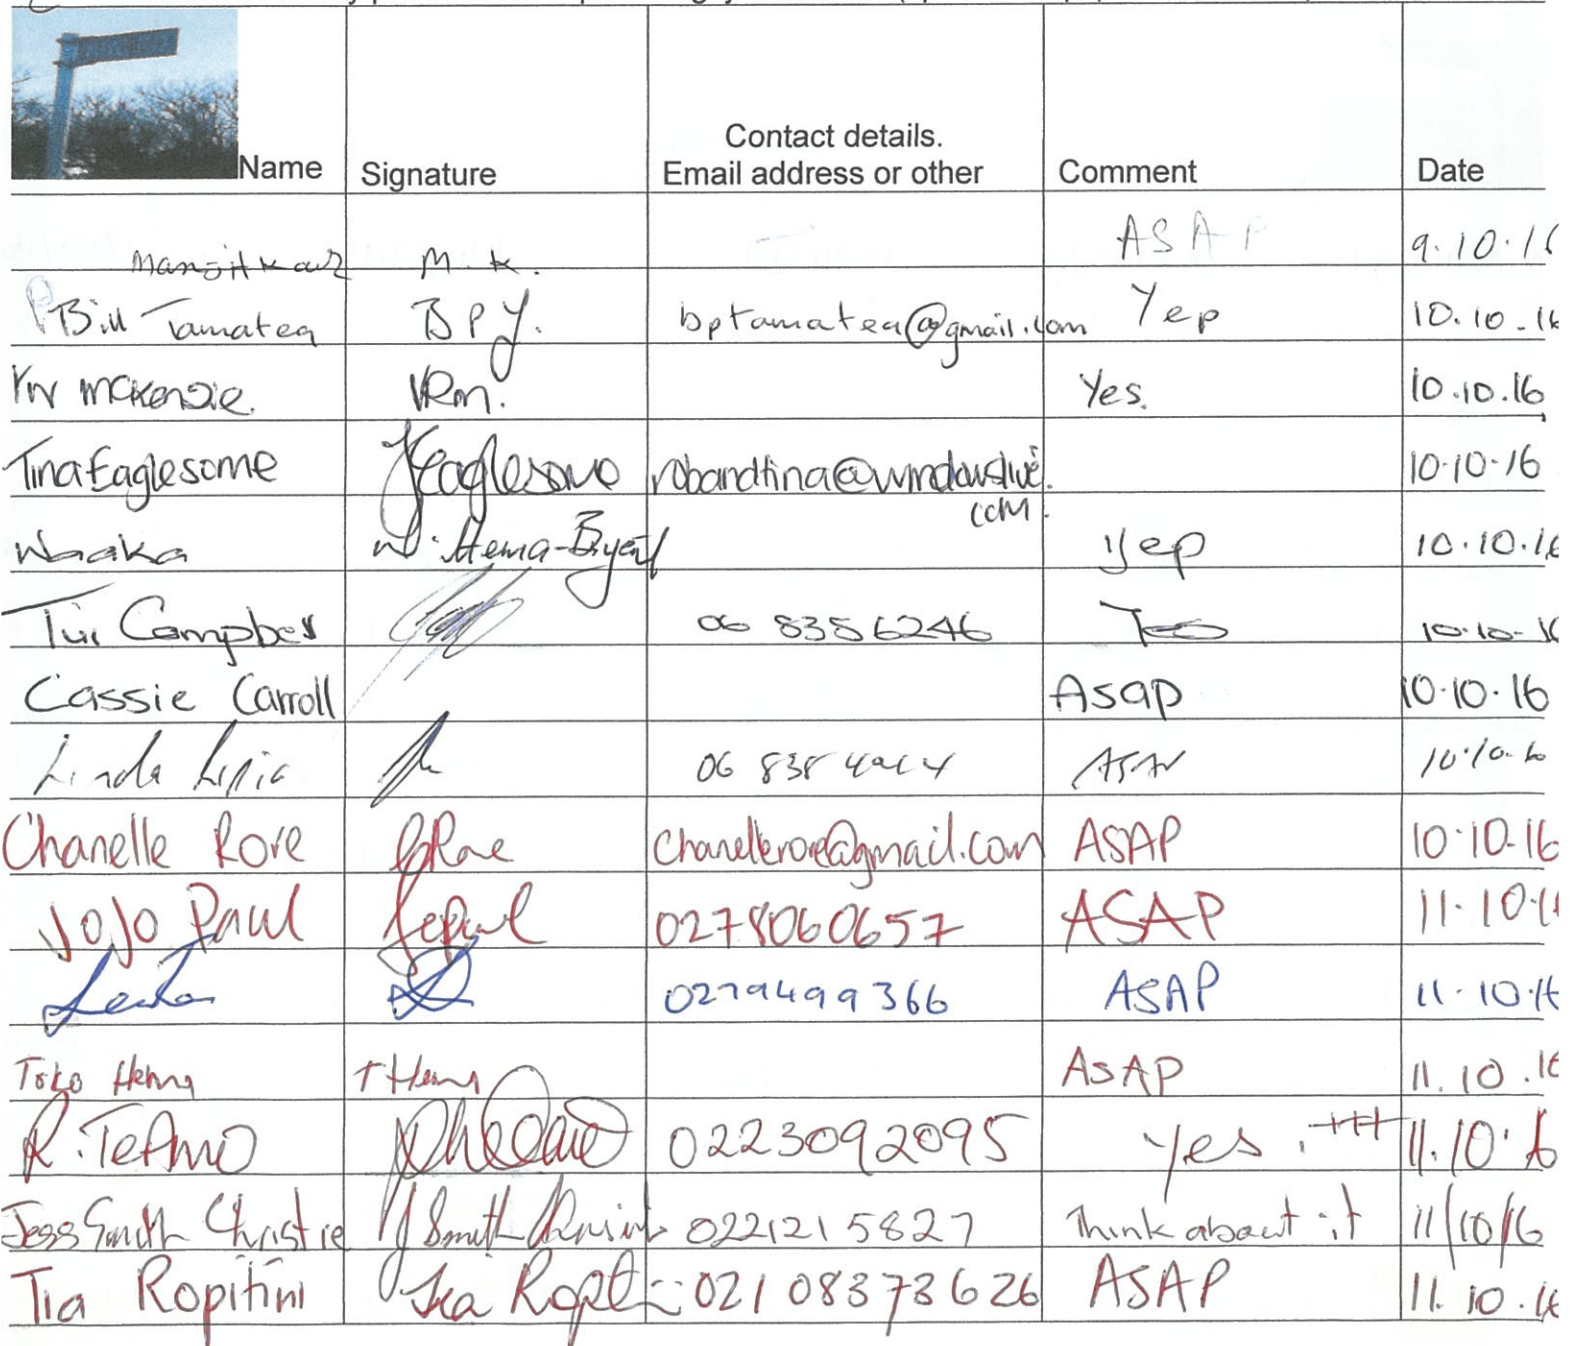 Contact details.
Name Signature Email address or other Comment Date
Manjit Kaur M. K. ASAP 9.10.16
Bill Tamatea B P T. bptamatea@gmail.com Yep 10.10.16
Viv McKenzie. VRM. Yes. 10.10.16
Tina Eaglesome TEaglesome robandtina@windowslive. 10.10.16
com.
Waaka W. Hema- Yep 10.10.16
Tui Campbell 06 8356246 10.10.16
Cassie Carroll Asap 10.10.16
Linda ASAP 10.10.16
Chanelle Rore CRore chanellerore@gmail.com ASAP 10.10.16
JoJo Paul Jepaul 0278060657 ASAP 11.10.16
0279499366 ASAP 11.10.16
Toko Hema T Hema ASAP 11.10.16
R. TeAmo 0223092095 yes. +++ 11.10.16
Jess Smith Christie J Smith Christie 022 1215827 Think about it 11/10/16
Tia Ropitini Tia Ropit 021 08373626 ASAP 11.10.16